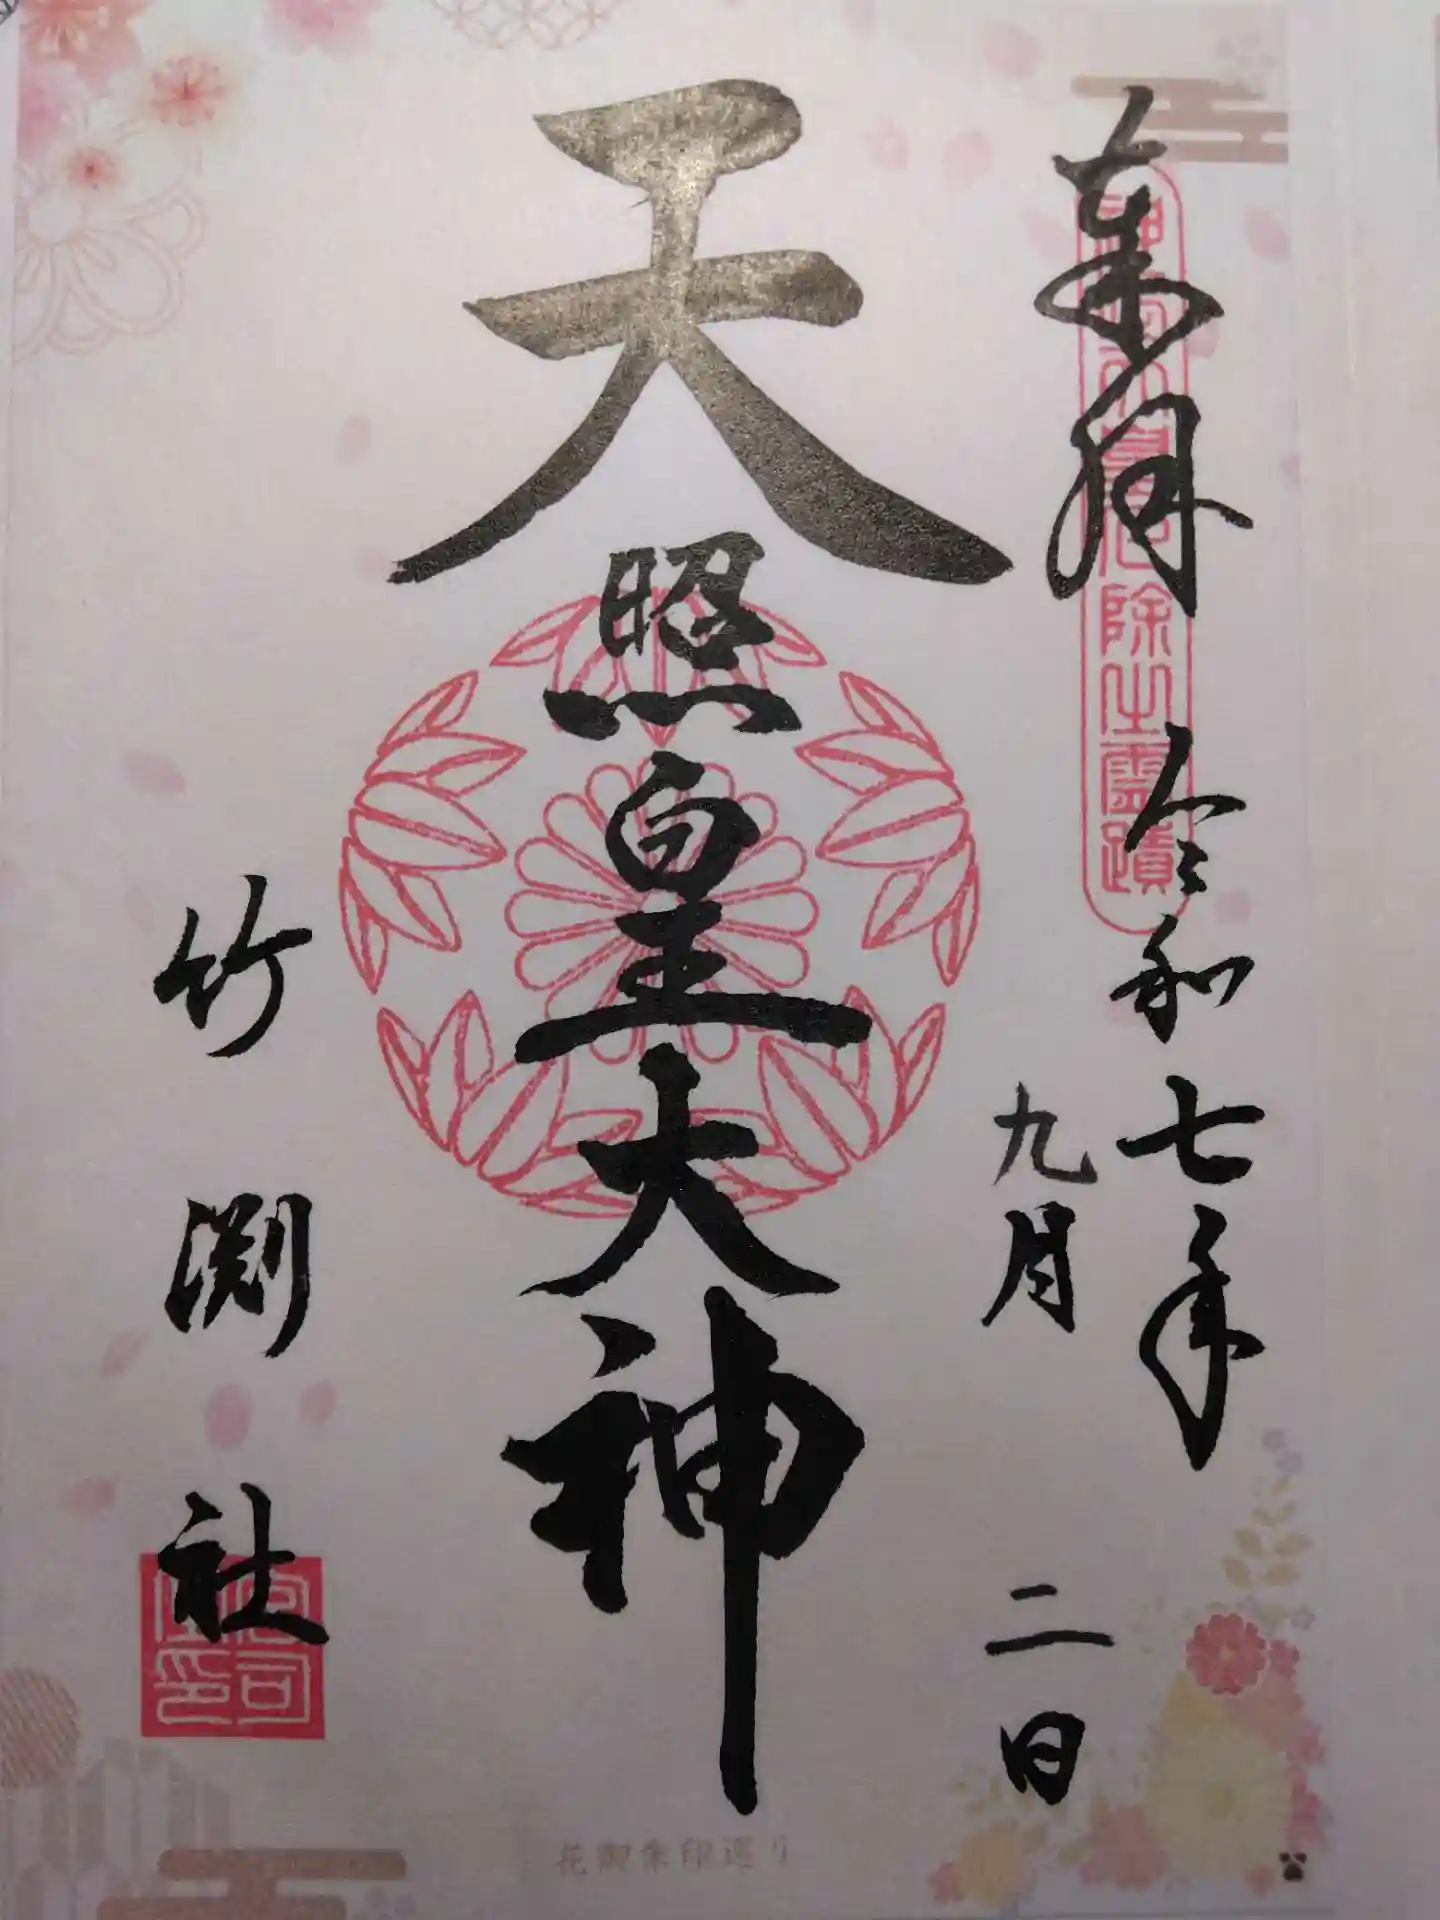 奉拝
令和七年
九月二日
天照皇大神
竹渕社
宮司之印
花御朱印巡り